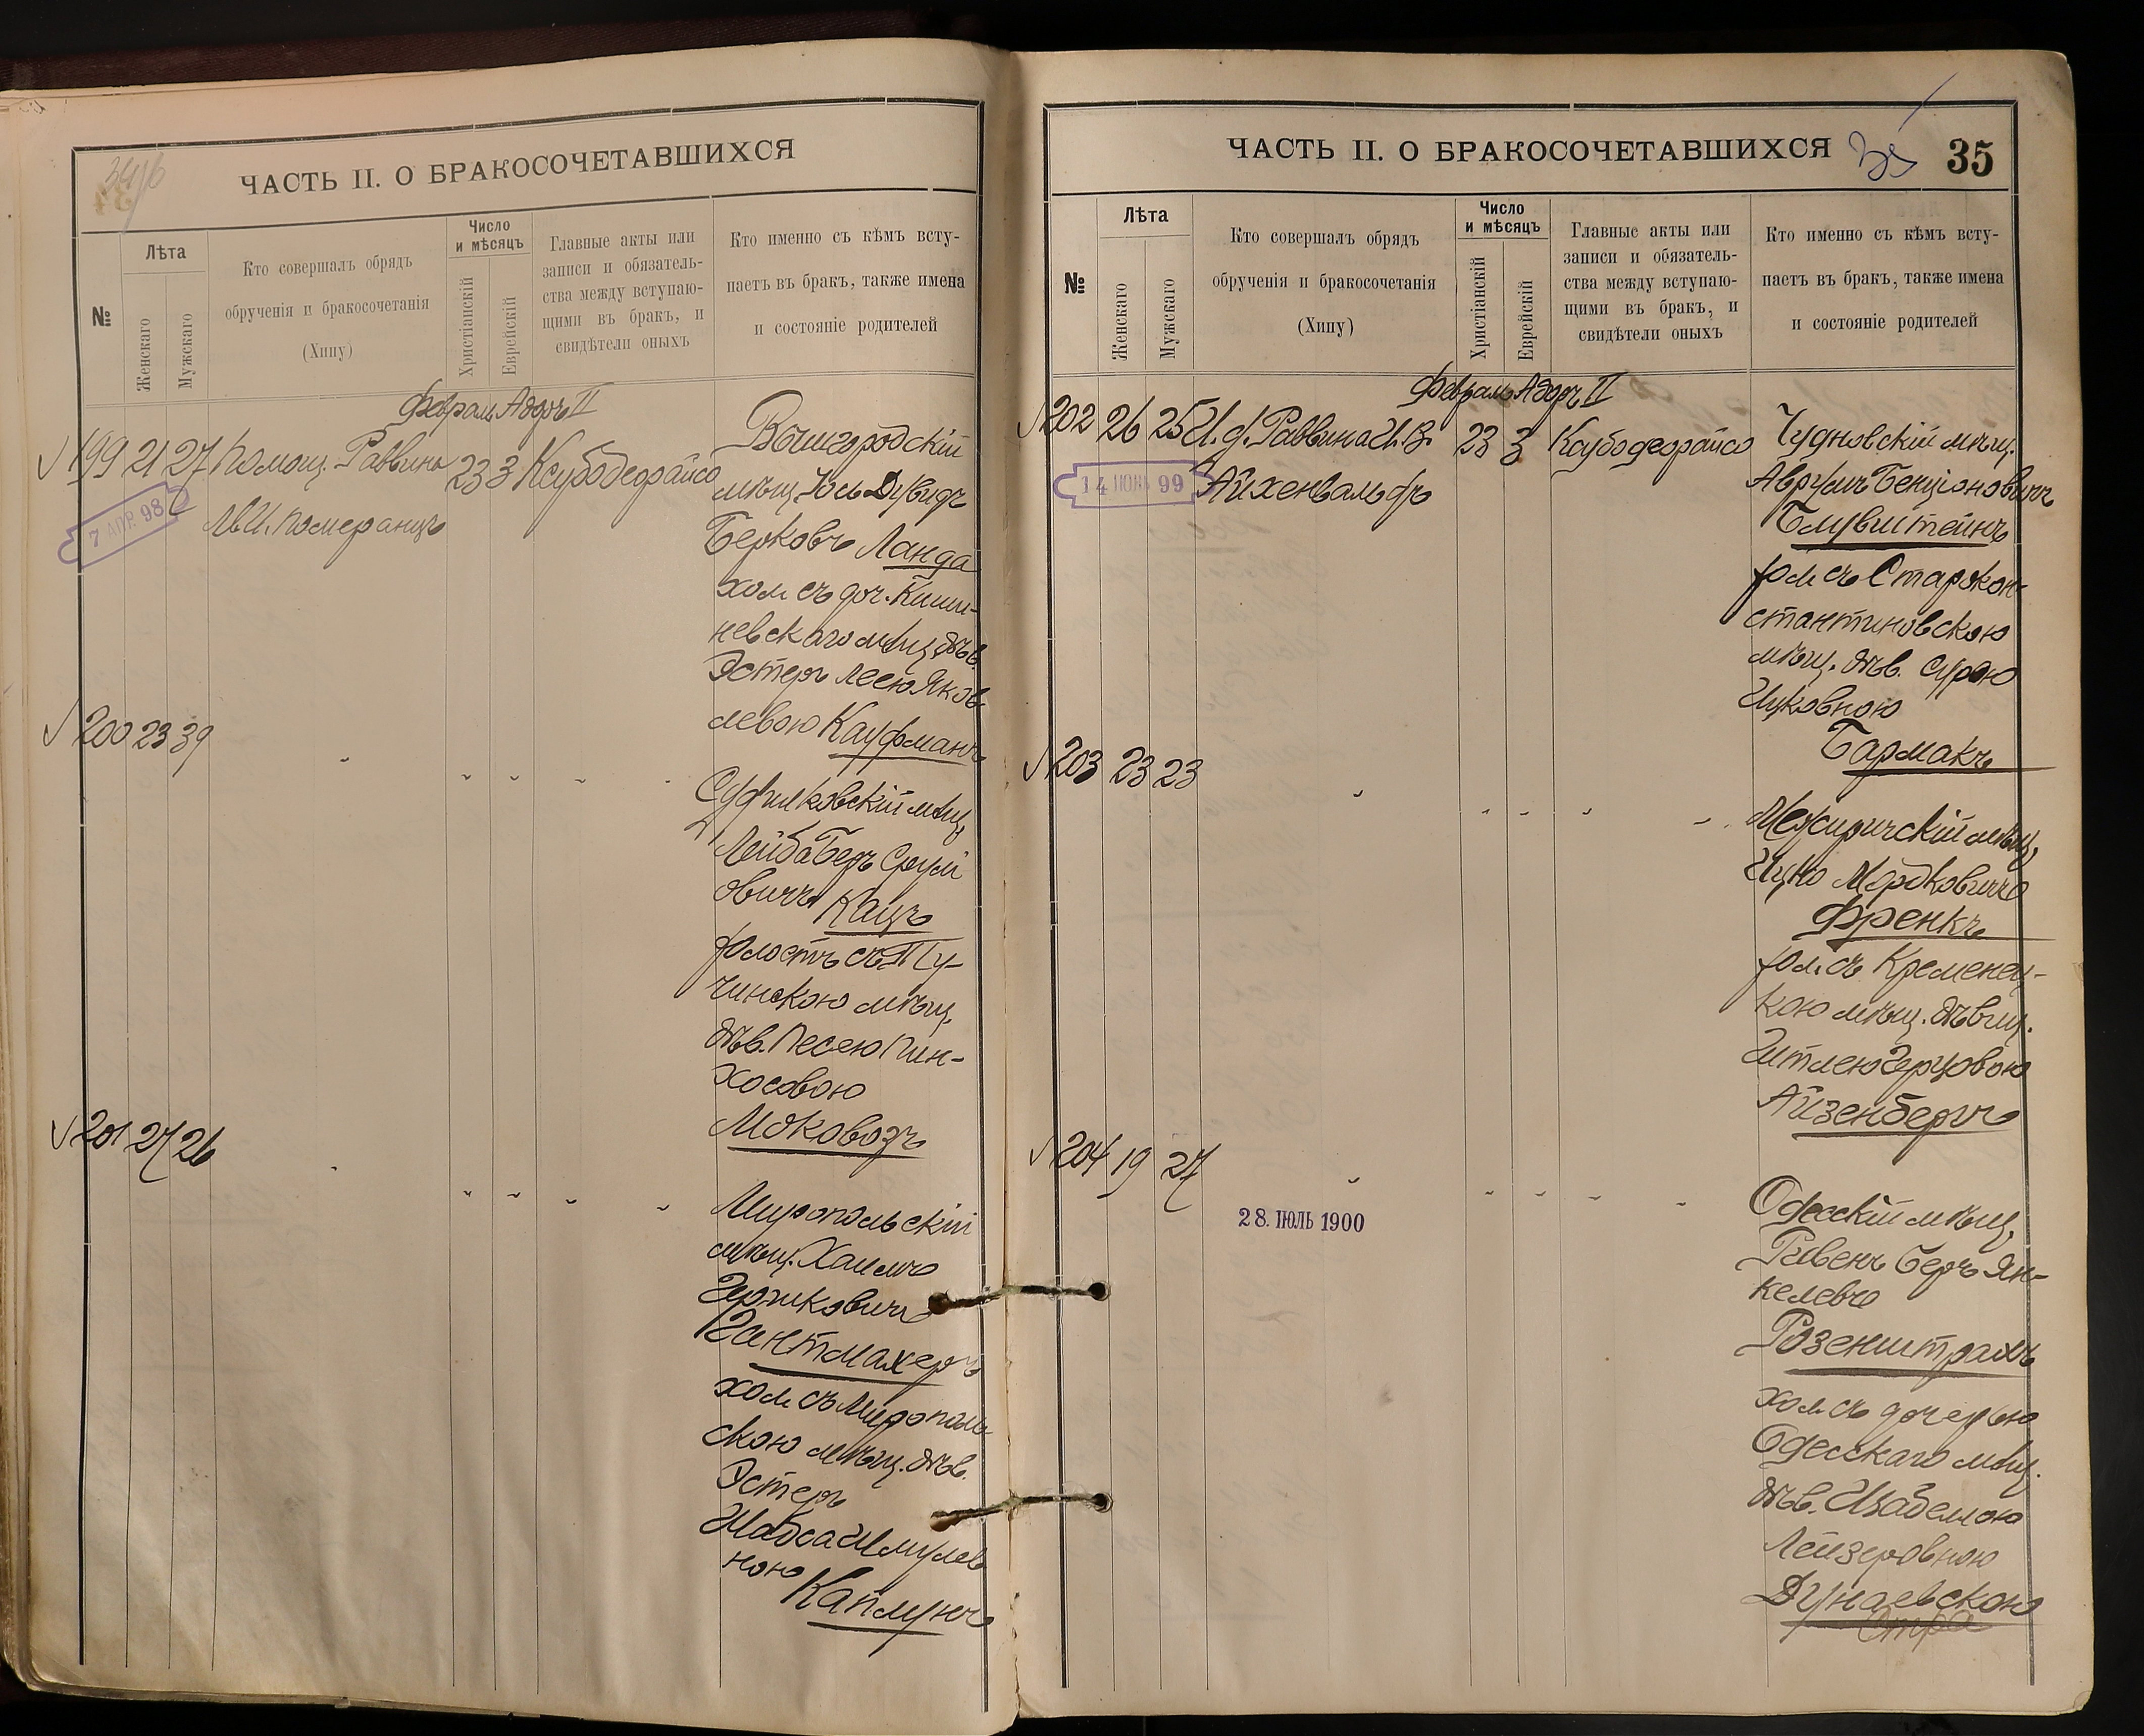 ЧАСТЬ II. О БРАКОСОЧЕТАВШИХСЯ
№
Лѣта
Женскаго
Мужскаго
Кто совершалъ обрядъ
обрученія и бракосочетанія
(Хипу)
Число
и мѣсяцъ
Христіанскій
Еврейскій
Главные акты или
записи и обязатель-
ства между вступаю-
щими въ бракъ, и
свидѣтели оныхъ
Кто именно съ кѣмъ всту-
паетъ въ бракъ, также имена
и состояніе родителей
Февраль Адоръ II
199 21 27 Помощ. Раввина 23 3 Ксубодеорайсо
7 АПР. 98
Померанцъ
Вышгородскій
мѣщ. Йось Дувидъ
Берковъ Ланда
хол. съ доч. Киши-
невскаго мѣщ. дѣв.
Эстеръ Лею Яков-
левою Кауфманъ
200 23 39 " " " " "
Судилковскій мѣщ.
Лейба Беръ Срул
овичъ Кацъ
холостъ съ Ту-
чинскою мѣщ.
дѣв. Песею Пин-
хосовою
Моковозъ
201 27 26 " " " " "
Миропольскій
мѣщ. Хаимъ
Гершковичъ
Гантмахеръ
хол. съ Мирополь
скою мѣщ. дѣв.
Эстеръ
Шабса Шмулев
ною Каплунъ
ЧАСТЬ II. О БРАКОСОЧЕТАВШИХСЯ
35 35
№
Лѣта
Женскаго
Мужскаго
Кто совершалъ обрядъ
обрученія и бракосочетанія
(Хипу)
Число
и мѣсяцъ
Христіанскій
Еврейскій
Главные акты или
записи и обязатель-
ства между вступаю-
щими въ бракъ, и
свидѣтели оныхъ
Кто именно съ кѣмъ всту-
паетъ въ бракъ, также имена
и состояніе родителей
Февраль Адоръ II
202 26 25 И. д. Раввина И. В. 23 3 Ксубодеорайсо
14 ИЮНЬ 99 Айхенвальдъ
Чудновскій мѣщ.
Аврумъ Бенціоновичъ
Блувштейнъ
хол. съ Старокон-
стантиновскою
мѣщ. дѣв. Сурою
Ицковною
Бармакъ
203 23 23 " " " " "
Межиричскій мѣщ.
Ицко Мордковичъ
Френкъ
хол. съ Кременец-
кою мѣщ. дѣвиц.
Гитлею Герцовою
Айзенбергъ
204 19 27 " " " " "
28. ІЮЛЬ 1900
Одесскій мѣщ.
Рувенъ Беръ Ян-
келевъ
Розенштрахъ
хол. съ дочерью
Одесскаго мѣщ.
дѣв. Изабеллою
Лейзеровною
Дунаевскою